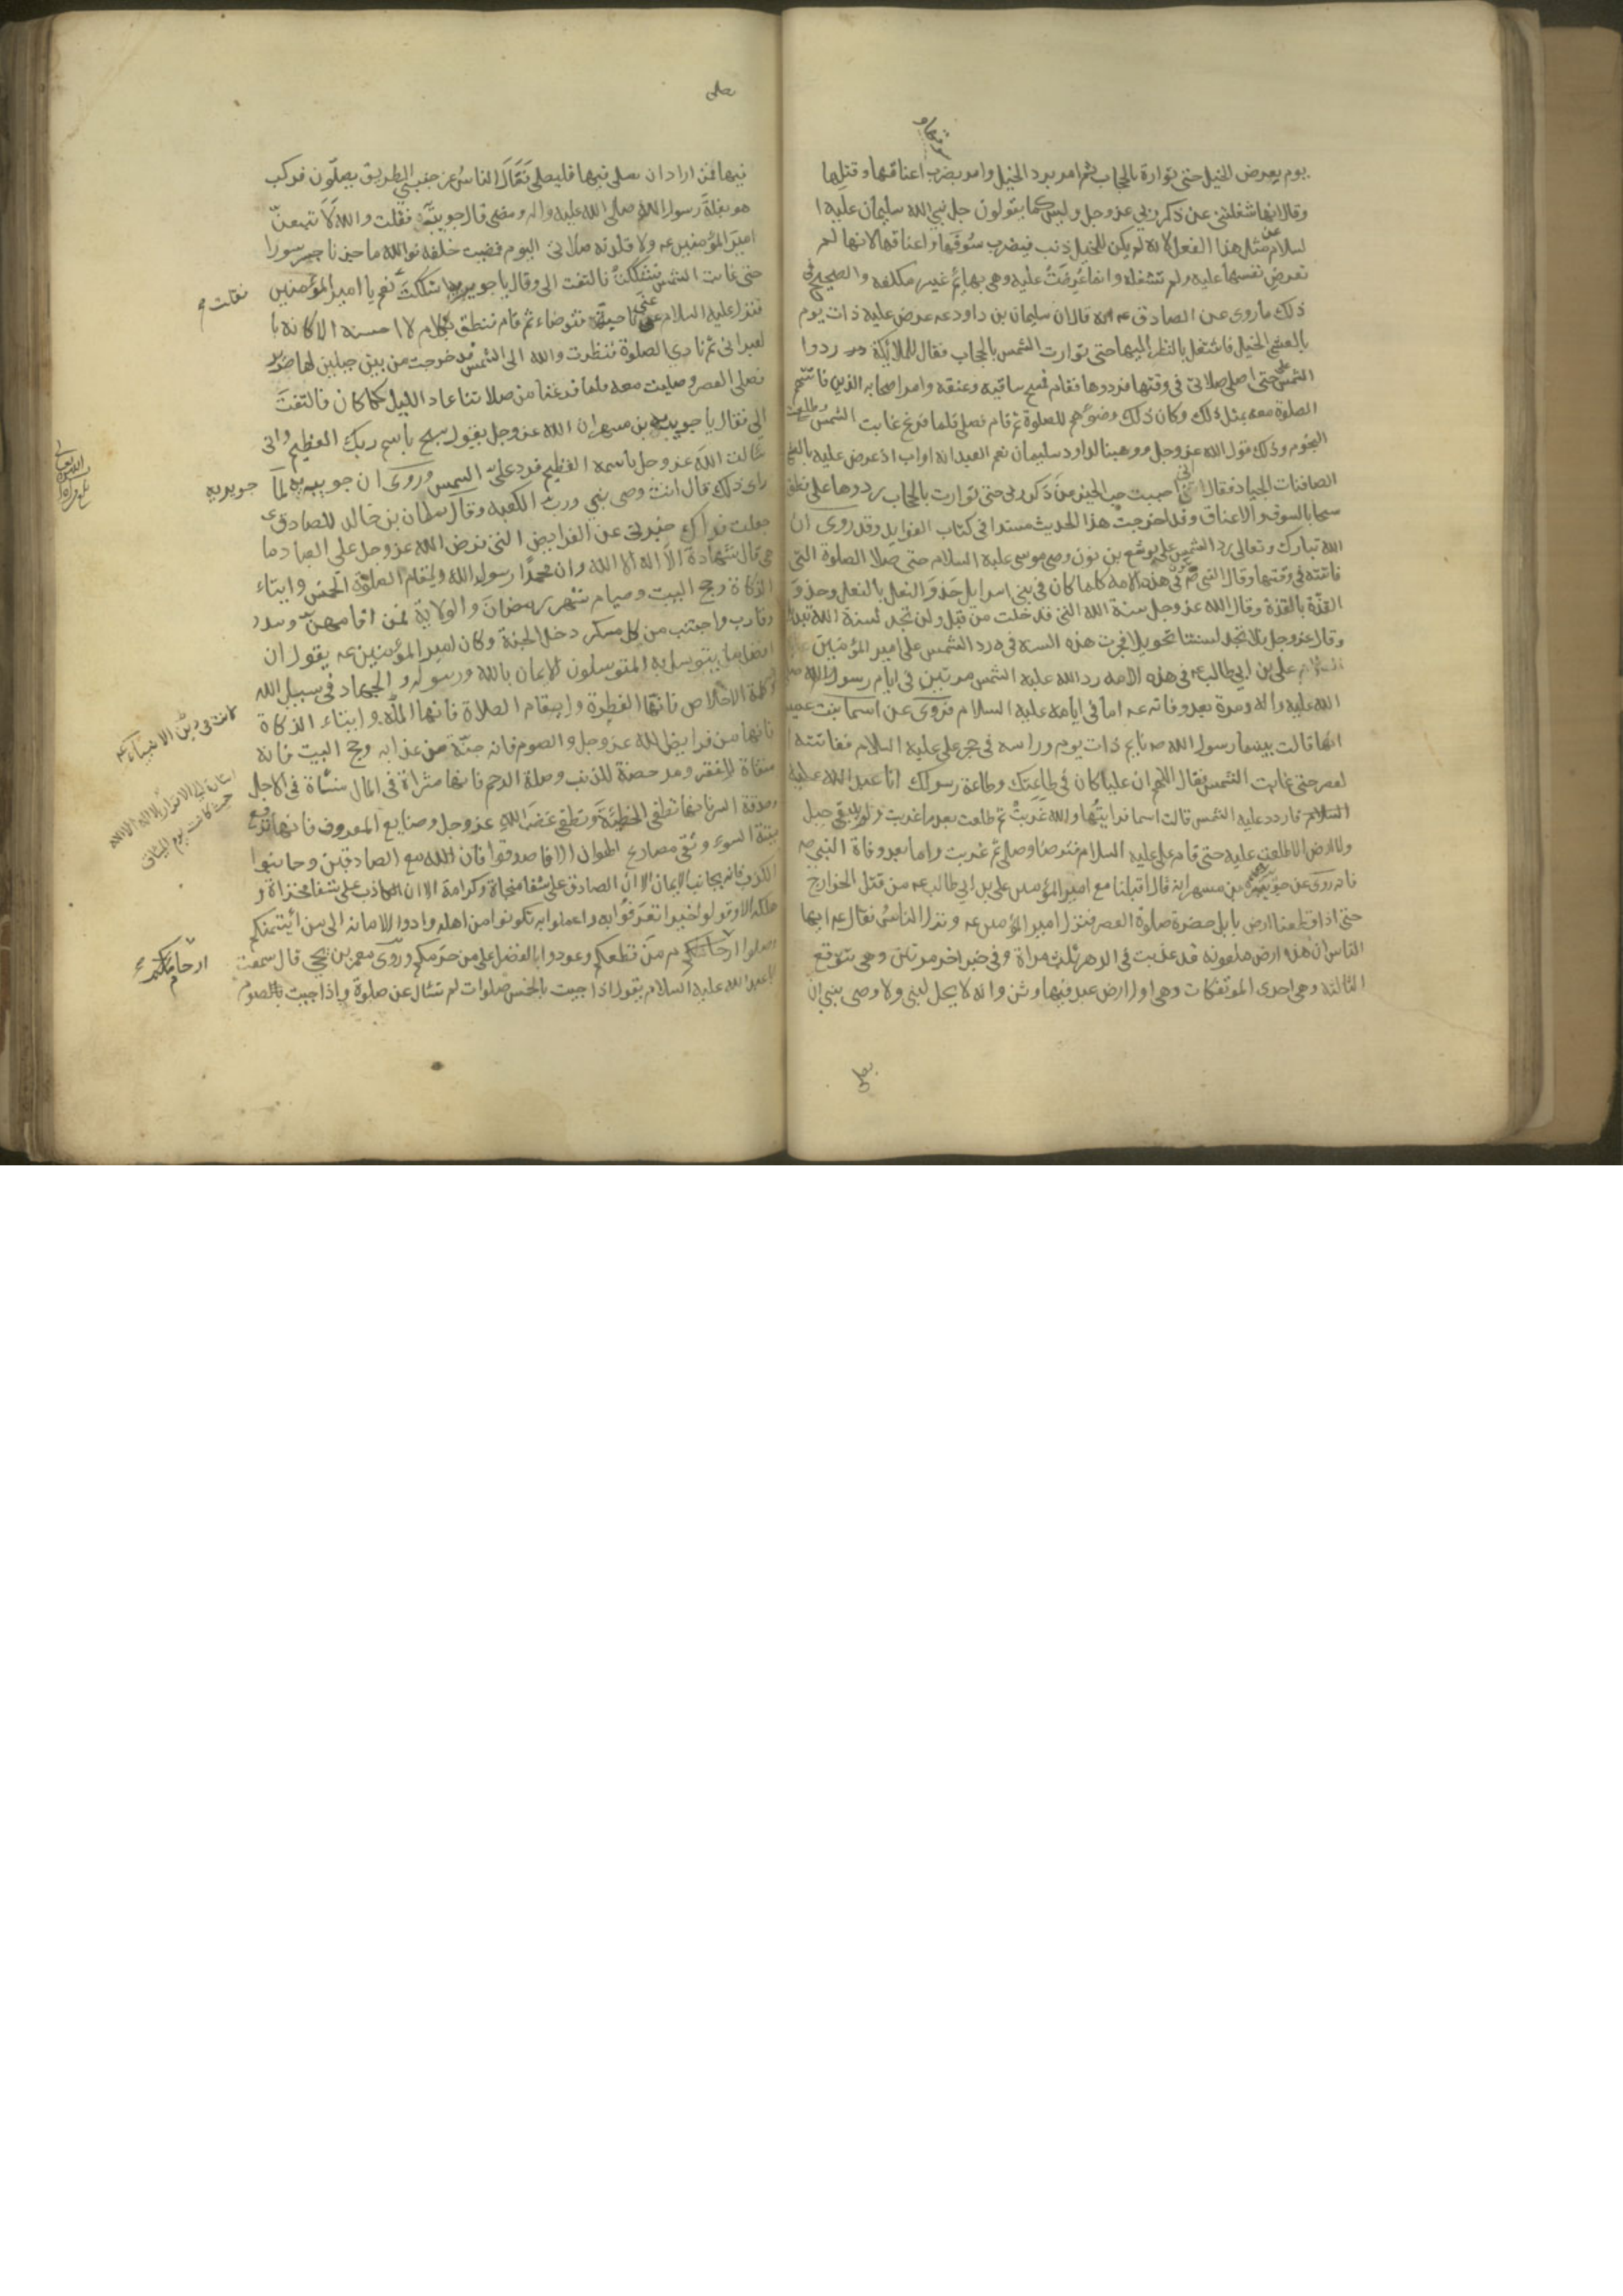 يوم يعرض الخيل حتى توارة بالحجاب ثم امر برد الخيل وامر بضرب اعناقها وقتلها
وقال انها شغلتني عن ذكر ربي عز وجل وليس كما يقولون جل نبي الله سليمان عليه ا
لسلام عن مثل هذا الفعل لانه لم يكن للخيل ذنب فيضرب سوقها واعناقها لانها لم
تعرض نفسها عليه ولم تشغله وانما عرضت عليه وهي بهايم غير مكلفه والصحيح في
ذلك ما روى عن الصادق ع انه قال ان سليمان بن داود ع عرض عليه ذات يوم
بالعشي الخيل فاشتغل بالنظر اليها حتى توارت الشمس بالحجاب فقال للملائكة ردوا
الشمس على حتى اصلى صلاتى في وقتها فردوها فقام فمسح ساقيه وعنقه وامر اصحابه الذين فاتتهم
الصلوة معه بمثل ذلك وكان ذلك وضوءهم للصلوة ثم قام فصلى فلما فرغ غابت الشمس وطلعت
النجوم وذلك قول الله عز وجل ووهبنا لداود سليمان نعم العبد انه اواب اذ عرض عليه بالعشي
الصافنات الجياد فقال انى احببت حب الخير من ذكر ربى حتى توارت بالحجاب ردوها على فطفق
مسحا بالسوق والاعناق وقد اخرجت هذا الحديث مسندا في كتاب الفوايد وقد روى ان
الله تبارك وتعالى رد الشمس على يوشع بن نون وصى موسى عليه السلام حتى صلا الصلوة التى
فاتته في وقتها وقال النبي ص يكون في هذه الامه كلما كان في بنى اسرايل حذو النعل بالنعل وحذو
القذة بالقذة وقال الله عز وجل سنة الله التى قد خلت من قبل ولن تجد لسنة الله تبديلا
وقال عز وجل ولا تجد لسنتنا تحويلا فجرت هذه السنه في رد الشمس على امير المؤمنين
على بن ابي طالب ع في هذه الامه رد الله عليه الشمس مرتين في ايام رسول الله ص
الله عليه واله ومرة بعد وفاته ع اما في ايامه عليه السلام فروى عن اسما بنت عميس
انها قالت بينما رسول الله ص نايم ذات يوم وراسه في حجر علي عليه السلام ففاتته ا
لعصر حتى غابت الشمس فقال اللهم ان عليا كان في طاعتك وطاعة رسولك
السلام فاردد عليه الشمس قالت اسما فرايتها والله غربت ثم طلعت بعد ما غربت ولم يبقى جبل
ولا ارض الا طلعت عليه حتى قام علي عليه السلام فتوضا وصلى ثم غربت واما بعد وفاة النبي ص
فانه روى عن جويرية بن مسهر انه قال اقبلنا مع امير المؤمنين على بن ابي طالب ع من قتل الخوارج
حتى اذا قطعنا ارض بابل حضرة صلوة العصر فنزل امير المؤمنين ع ونزل الناس فقال ع ايها
الناس ان هذه ارض ملعونه قد عذبت في الدهر ثلث مراة وفي خبر اخر مرتين وهي تتوقع
الثالثه وهي احدى الموتفكات وهي اول ارض عبد فيها وثن وانه لا يحل لنبي ولا وصى نبي ان
يصلى
يصلى
فيها فمن اراد ان يصلى فيها فليصلى فمال الناس عن جنبي الطريق يصلون فركب
هو بغلة رسول الله صلى الله عليه واله ومضى قال جويرية فقلت والله لا تبعن
امير المؤمنين ع ولا قلدنه صلاتى اليوم فمضيت خلفه فوالله ما جزنا جسر سورا
حتى غابت الشمس فشككت فالتفت الى وقال يا جويرية اشككت نعم يا امير المؤمنين
فقلت
فنزل عليه السلام عن ناحية فتوضاء ثم قام فنطق بكلام لا احسنه الا كانه با
لعبرانى ثم نادى الصلوة فنظرت والله الى الشمس قد خرجت من بين جبلين لها صرير
فصلى العصر وصليت معه فلما فرغنا من صلاتنا عاد الليل كما كان فالتفت
الى فقال يا جويرية بن مسهر ان الله عز وجل يقول فسبح باسم ربك العظيم وانى
سالت الله عز وجل باسمه العظيم فرد على الشمس وروى ان جويريه لما
جويريه
راى ذلك قال انت وصى نبي ورب الكعبه وقال سليمان بن خالد للصادق ع
جعلت فداك خبرنى عن الفرايض التى فرض الله عز وجل على العباد ما
هي قال شهادة الا اله الا الله وان محمدا رسول الله واقام الصلوة الخمس وايتاء
الزكاة وحج البيت وصيام شهر رمضان والولاية فمن اقامهن وسدد
وقارب واجتنب من كل مسكر دخل الجنة وكان امير المؤمنين ع يقول ان
افضل ما يتوسل به المتوسلون الايمان بالله ورسوله والجهاد في سبيل الله
وكلمة الاخلاص فانها الفطرة واقام الصلاة فانها المله وايتاء الزكاة
فانها من فرايض الله عز وجل والصوم فانه جنة من عذابه وحج البيت فانه
منفاة للفقر ومدحضة للذنب وصلة الرحم فانها مثراة في المال منساة في الاجل
وصدقة السر فانها تطفي الخطيئة وتطفي غضب الله عز وجل وصنايع المعروف فانها تدفع
ميتة السوء وتقى مصارع الهوان الا فاصدقوا فان الله مع الصادقين وجانبوا
الكذب فانه يجانب الايمان الا ان الصادق على شفا منجاة وكرامة الا ان الكاذب على شفا مخزاة و
هلكة الا وقولوا خيرا تعرفوا به واعملوا به تكونوا من اهله وادوا الامانه الى من ائتمنكم
وصلوا ارحامكم من قطعكم وعودوا بالفضل على من حرمكم وروى معمر بن يحيى قال سمعت
ارحامكم
ابا عبد الله عليه السلام يقول اذا جيت بالخمس صلوات لم تسئال عن صلوة واذا جيت بالصوم
كانت في دين الانبياء ع